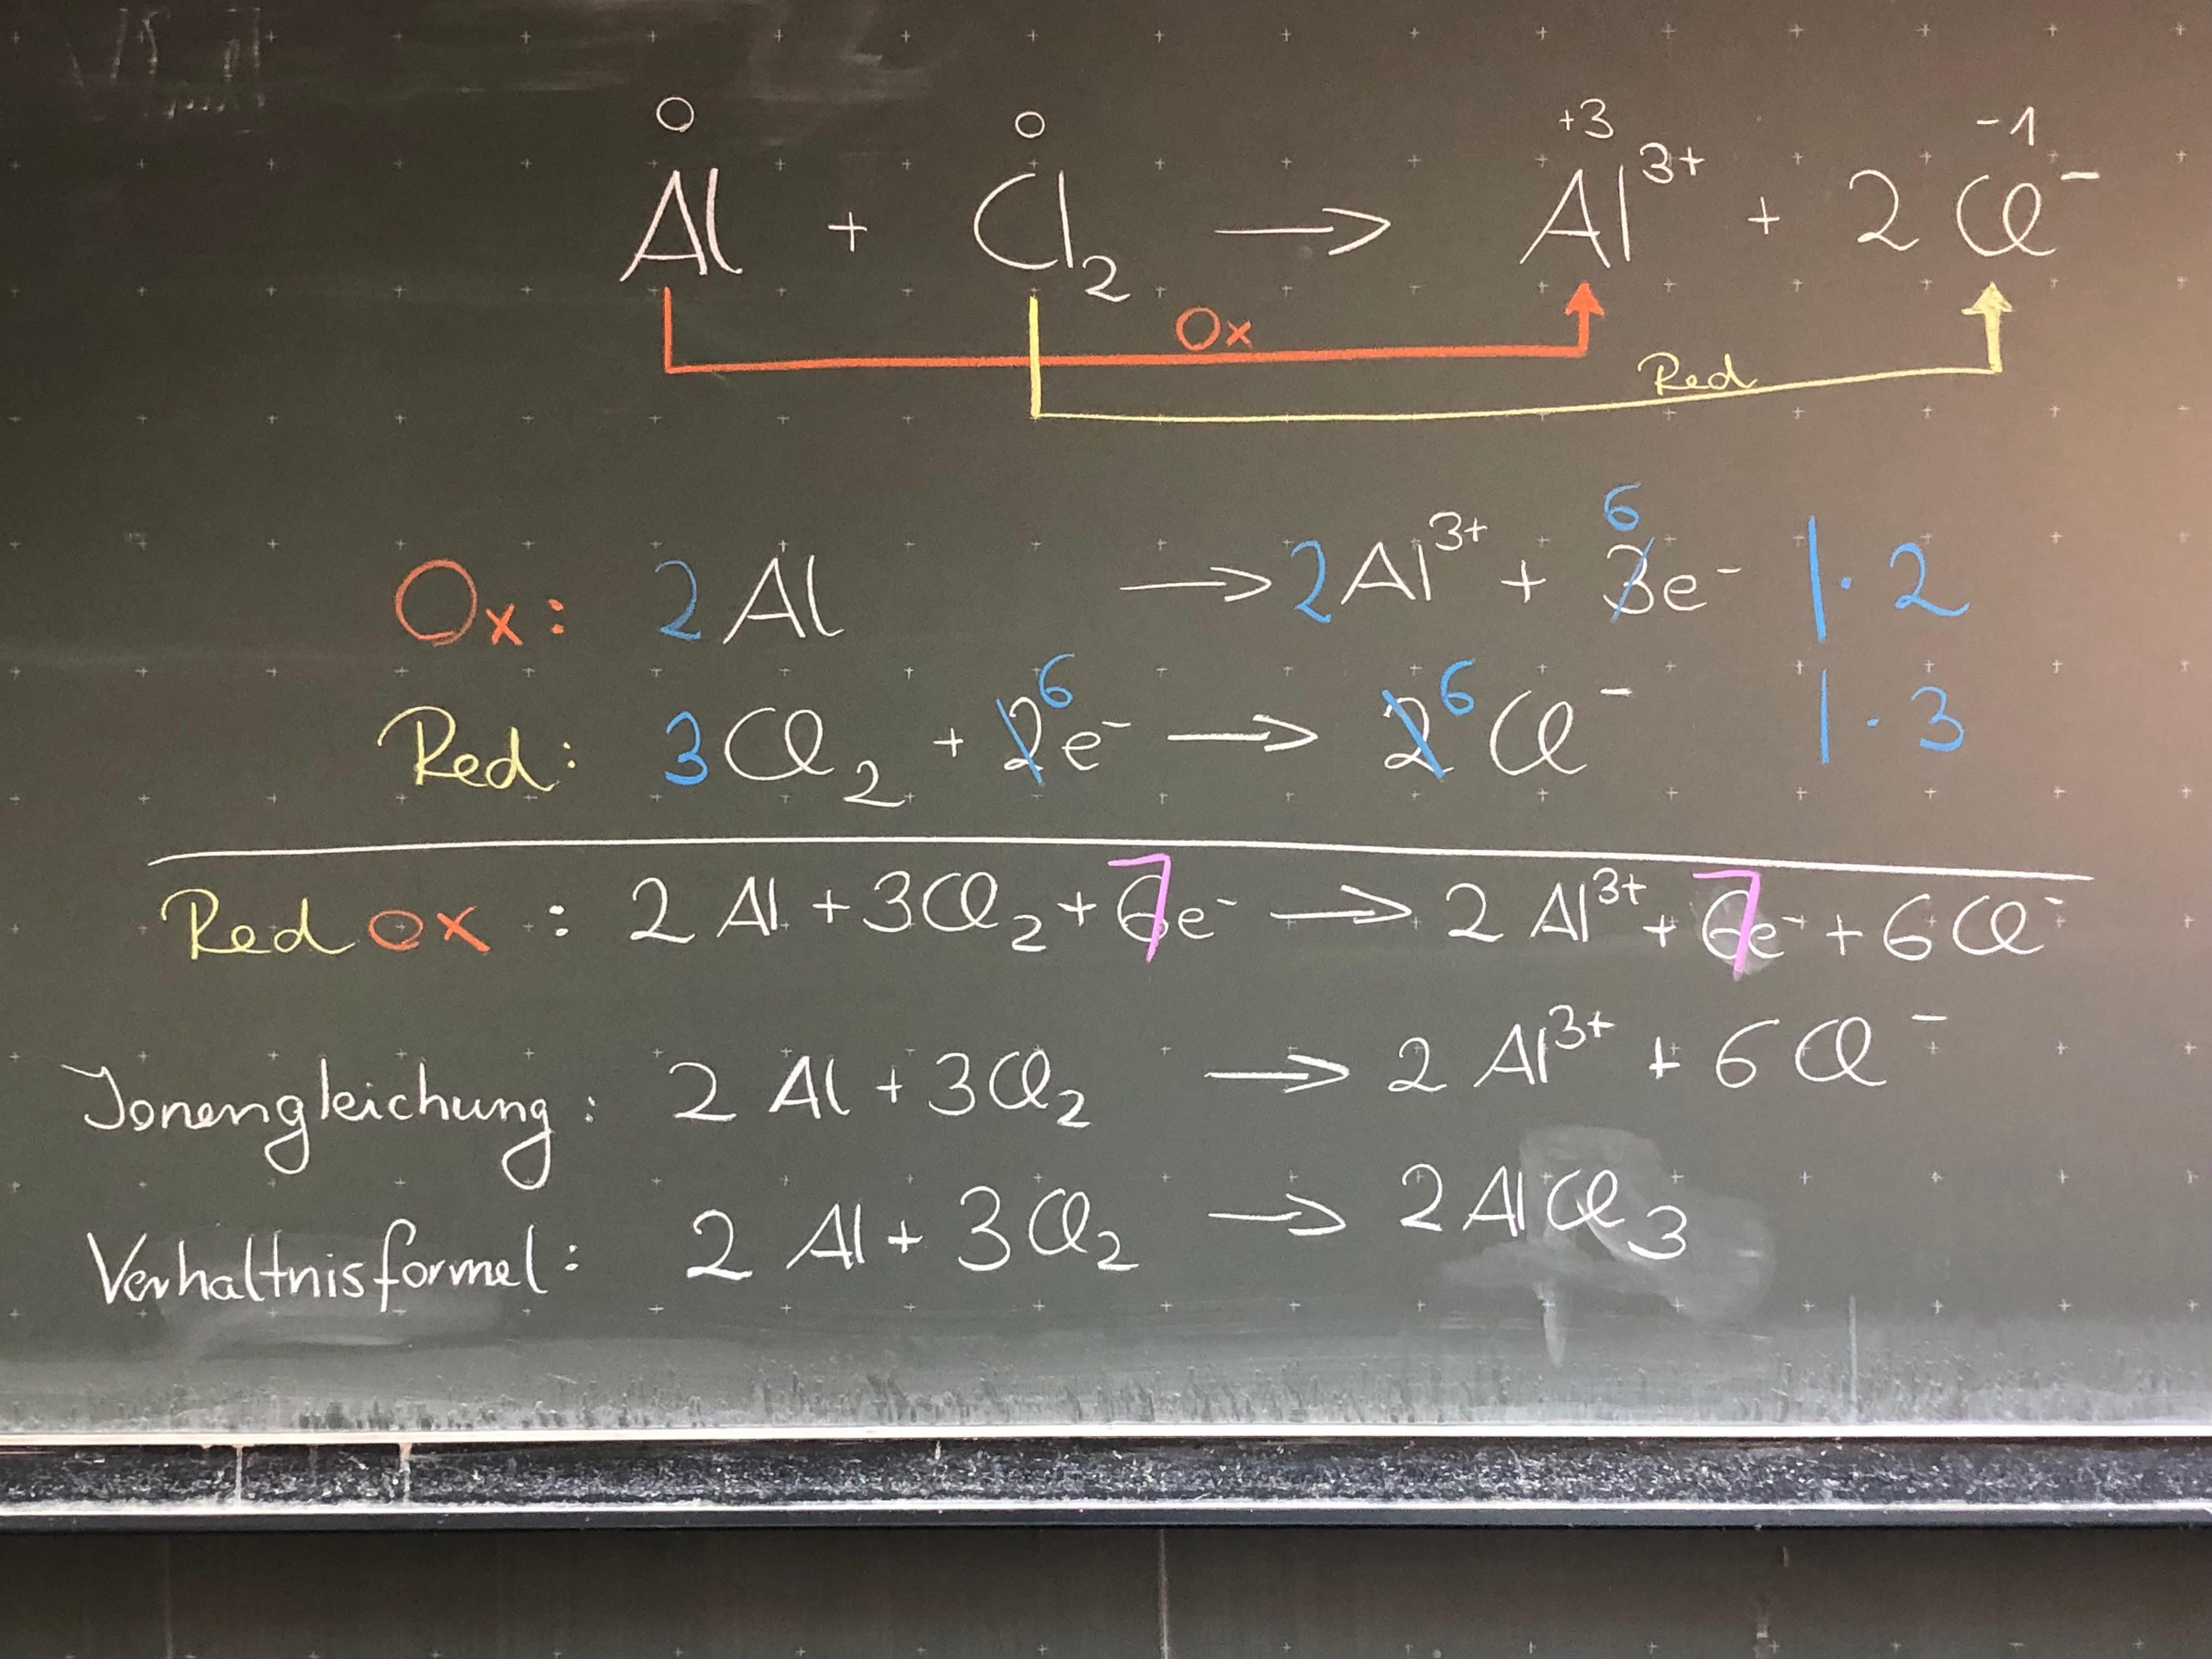 0 0 +3 -1
Al + Cl₂ → Al³⁺ + 2 Cl⁻
Ox
Red
6
Ox: 2 Al → 2 Al³⁺ + 3e⁻ | · 2
6 6
Red: 3 Cl₂ + 2e⁻ → 2 Cl⁻ | · 3
Redox : 2 Al + 3 Cl₂ + 6e⁻ → 2 Al³⁺ + 6e⁻ + 6 Cl⁻
Jonengleichung: 2 Al + 3 Cl₂ → 2 Al³⁺ + 6 Cl⁻
Verhaltnisformel: 2 Al + 3 Cl₂ → 2 AlCl₃